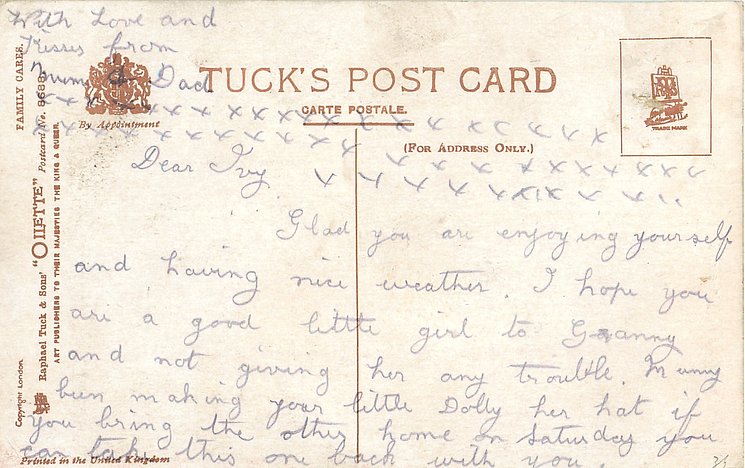 With Love and
Kisses from
Mum & Dad
TUCK'S POST CARD
CARTE POSTALE.
(FOR ADDRESS ONLY.)
By Appointment
TRADE MARK
FAMILY CARES.
Raphael Tuck & Sons' "OILETTE" Postcard No. 8688
ART PUBLISHERS TO THEIR MAJESTIES THE KING & QUEEN
Copyright London.
Dear Ivy
Glad you are enjoying yourself
and having nice weather. I hope you
are a good little girl to Granny
and not giving her any trouble. Mummy
bun making your little Dolly her hat if
you bring the other home on Saturday you
can take this one back with you.
Printed in the United Kingdom